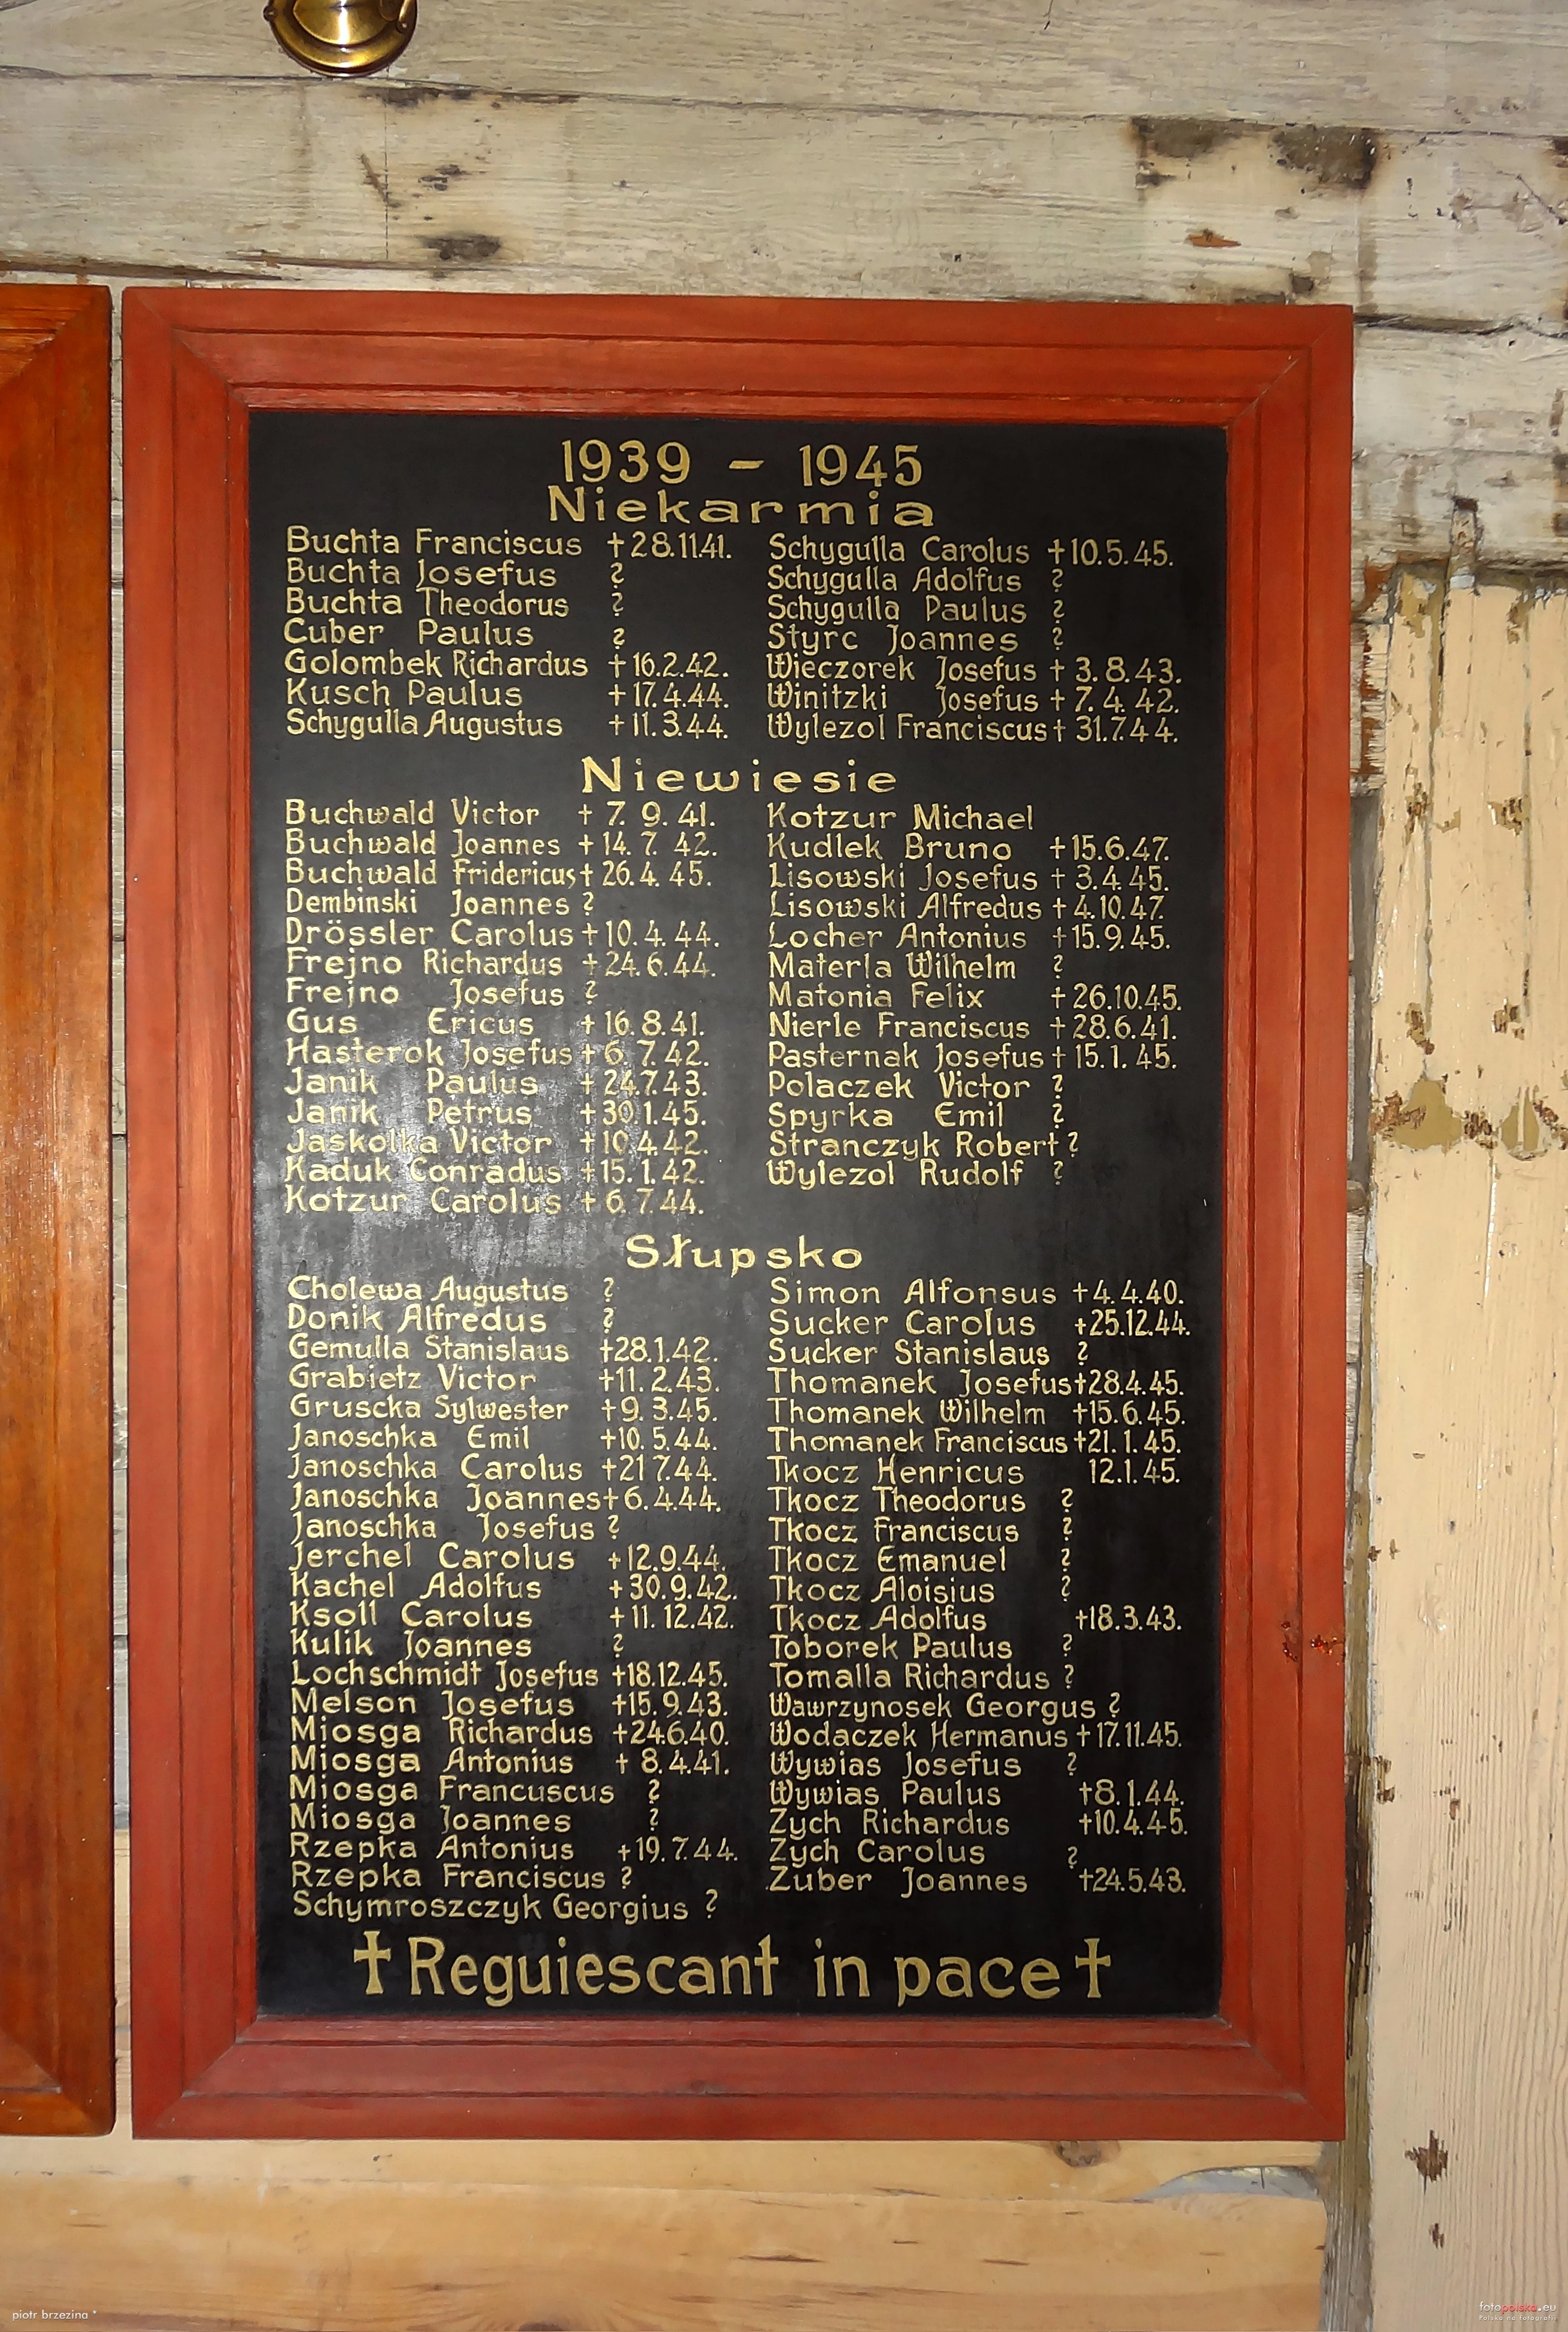 1939 – 1945
Niekarmia
Buchta Franciscus †28.11.41.
Buchta Josefus ?
Buchta Theodorus ?
Cuber Paulus ?
Golombek Richardus †16.2.42.
Kusch Paulus †17.4.44.
Schygulla Augustus †11.3.44.
Schygulla Carolus †10.5.45.
Schygulla Adolfus ?
Schygulla Paulus ?
Styrc Joannes ?
Wieczorek Josefus †3.8.43.
Winitzki Josefus †7.4.42.
Wylezol Franciscus †31.7.44.
Niewiesie
Buchwald Victor †7.9.41.
Buchwald Joannes †14.7.42.
Buchwald Fridericus †26.4.45.
Dembinski Joannes ?
Drössler Carolus †10.4.44.
Frejno Richardus †24.6.44.
Frejno Josefus ?
Gus Ericus †16.8.41.
Hasterok Josefus †6.7.42.
Janik Paulus †24.7.43.
Janik Petrus †30.1.45.
Jaskolka Victor †10.4.42.
Kaduk Conradus †15.1.42.
Kotzur Carolus †6.7.44.
Kotzur Michael
Kudlek Bruno †15.6.47.
Lisowski Josefus †3.4.45.
Lisowski Alfredus †4.10.47.
Locher Antonius †15.9.45.
Materla Wilhelm ?
Matonia Felix †26.10.45.
Nierle Franciscus †28.6.41.
Pasternak Josefus †15.1.45.
Polaczek Victor ?
Spyrka Emil ?
Stranczyk Robert ?
Wylezol Rudolf ?
Słupsko
Cholewa Augustus ?
Donik Alfredus ?
Gemulla Stanislaus †28.1.42.
Grabietz Victor †11.2.43.
Gruscka Sylwester †9.3.45.
Janoschka Emil †10.5.44.
Janoschka Carolus †21 7.44.
Janoschka Joannes †6.4.44.
Janoschka Josefus ?
Jerchel Carolus †12.9.44.
Kachel Adolfus †30.9.42.
Ksoll Carolus †11.12.42.
Kulik Joannes ?
Lochschmidt Josefus †18.12.45.
Melson Josefus †15.9.43.
Miosga Richardus †24.6.40.
Miosga Antonius †8.4.41.
Miosga Francuscus ?
Miosga Joannes ?
Rzepka Antonius †19.7.44.
Rzepka Franciscus ?
Schymroszczyk Georgius ?
Simon Alfonsus †4.4.40.
Sucker Carolus †25.12.44.
Sucker Stanislaus ?
Thomanek Josefus †28.4.45.
Thomanek Wilhelm †15.6.45.
Thomanek Franciscus †21.1.45.
Tkocz Henricus 12.1.45.
Tkocz Theodorus ?
Tkocz Franciscus ?
Tkocz Emanuel ?
Tkocz Aloisius ?
Tkocz Adolfus †18.3.43.
Toborek Paulus ?
Tomalla Richardus ?
Wawrzynosek Georgus ?
Wodaczek Hermanus †17.11.45.
Wywias Josefus ?
Wywias Paulus †8.1.44.
Zych Richardus †10.4.45.
Zych Carolus ?
Zuber Joannes †24.5.43.
† Reguiescant in pace †
piotr brzezina *
fotopolska.eu
Polska na fotografii